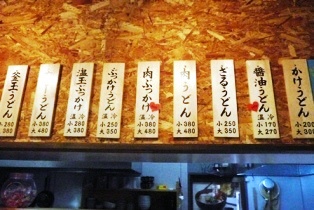 かけうどん
小 260
大 350
醤油うどん
温 冷
小 170
大 270
ざるうどん
小 260
大 350
肉うどん
小 380
大 480
肉ぶっかけ
温 冷
小 380
大 480
ぶっかけうどん
温 冷
小 250
大 350
温玉ぶっかけ
温 冷
小 280
大 380
うどん
小 380
大 480
釜玉うどん
小 260
大 360